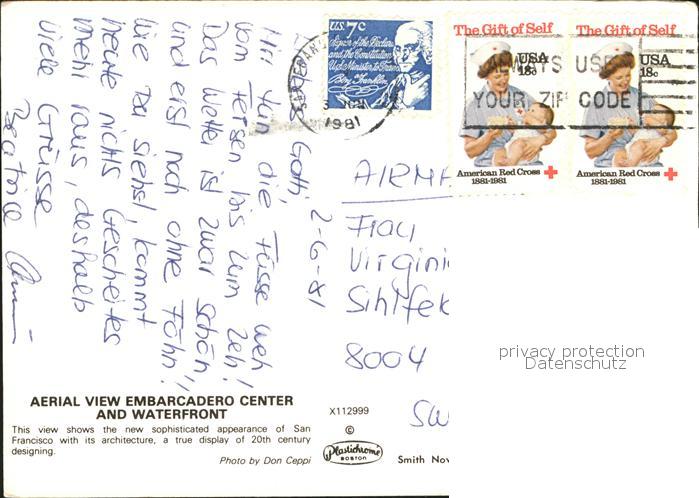 2-6-81
Liebes Gotti,
Mir tun die Füsse weh
vom Fersen bis zum Zeh!
Das Wetter ist zwar schön
und erst noch ohne Föhn!!
Wie Du siehst, kommt
heute nichts Gescheites
mehr raus, deshalb
viele Grüsse
Beatrice
U.S. 7c
Signer of the Declara
and the Constitution
U.S. Minister to France
Benj Franklin
3 JUN
1981
The Gift of Self
USA
18c
American Red Cross
1881-1981
The Gift of Self
USA
18c
American Red Cross
1881-1981
ALWAYS USE
YOUR ZIP CODE
AIRMA
Frau
Virgini
Sihlfel
8004
SW
privacy protection
Datenschutz
AERIAL VIEW EMBARCADERO CENTER
AND WATERFRONT
This view shows the new sophisticated appearance of San
Francisco with its architecture, a true display of 20th century
designing.
Photo by Don Ceppi
X112999
©
Plastichrome
BOSTON
Smith Nov